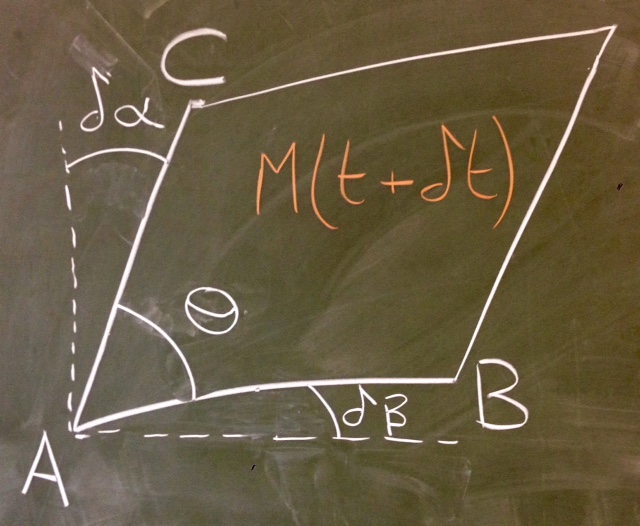 C
δα
M(t+δt)
θ
δβ
B
A